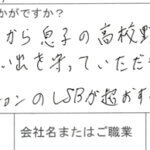 かがですか？
から息子の高校野
い出を守っていただ
ョンのLSBが超おす
会社名またはご職業